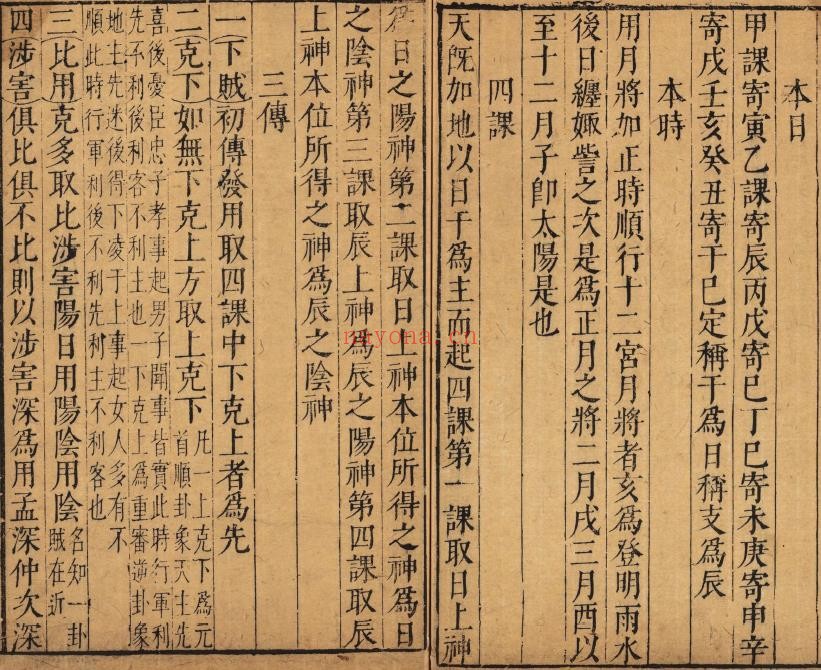 本日
甲課寄寅乙課寄辰丙戊寄巳丁巳寄未庚寄申辛
寄戌壬亥癸丑寄干巳定稱干爲日稱支爲辰
本時
用月將加正時順行十二宮月將者亥爲登明雨水
後日纏娵訾之次是爲正月之將二月戌三月酉以
至十二月子卽太陽是也
四課
天旣加地以日干爲主而起四課第一課取日上神
爲日之陽神第二課取日上神本位所得之神爲日
之陰神第三課取辰上神爲辰之陽神第四課取辰
上神本位所得之神爲辰之陰神
三傳
一下賊初傳發用取四課中下克上者爲先
二克下如無下克上方取上克下
凡一上克下爲元
首順卦象天主先
喜後憂臣忠子孝事起男子聞事皆實此時行軍利
先不利後利客不利主也一下克上爲重審逆卦象
地主先迷後得下凌于上事起女人多有不
順此時行軍利後不利先利主不利客也
三比用克多取比涉害陽日用陽陰用陰
名知一卦
賊在近
四涉害俱比俱不比則以涉害深爲用孟深仲次深
nayona.cn